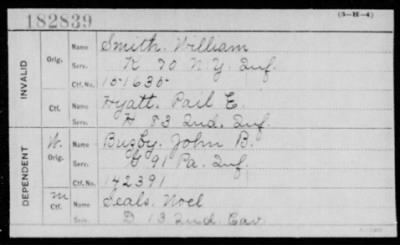 182839
(3-H-4)
INVALID
Orig.
Name
Smith, William
Serv.
K 70 N.Y. Inf.
Ctf. No.
151635
Ctf.
Name
Hyatt, Pail E.
Serv.
H 83 Ind. Inf.
DEPENDENT
W.
Orig.
Name
Busby, John B.
Serv.
G 91 Pa. Inf.
Ctf. No.
142391
M
Ctf.
Name
Seals, Noel
Serv.
D 13 Ind. Cav.